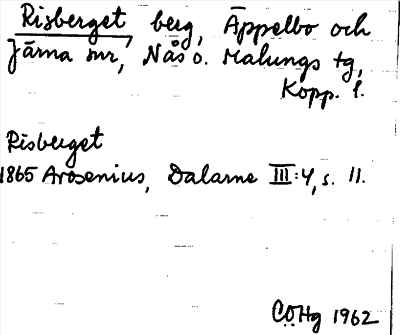 Risberget berg, Äppelbo och
Järna snr, Nås o. Malungs tg,
Kopp. l.
Risberget
1865 Arosenius, Dalarne III:4, s. 11.
CÖHg 1962